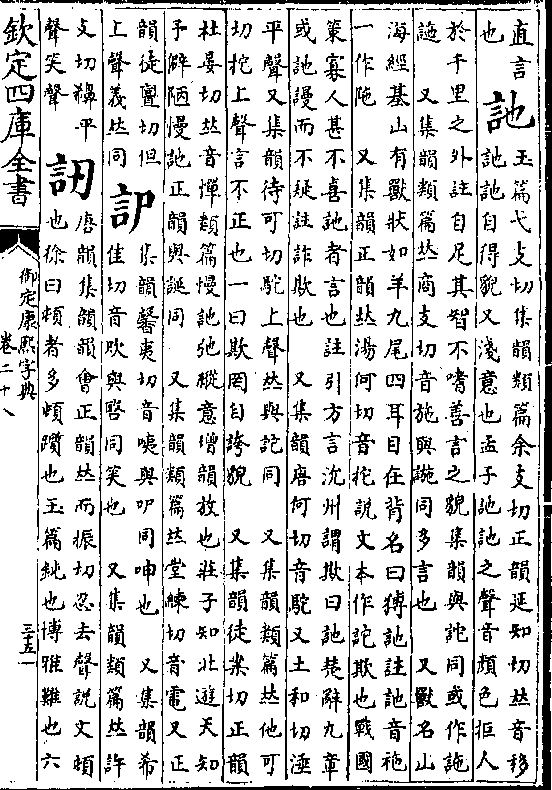 直言
也 訑 玉篇弋支切集韻類篇余支切正韻延知切𠀤音移
訑訑自得貌又淺意也孟子訑訑之聲音顏色拒人
於千里之外註自足其智不嗜善言之貌集韻與詑同或作訑
訑 又集韻類篇𠀤商支切音施與詑同多言也 又獸名山
海經基山有獸狀如羊九尾四耳目在背名曰猼訑註訑音祂
一作陁 又集韻正韻𠀤湯何切音拕說文本作詑欺也戰國
策寡人甚不喜訑者言也註引方言沇州謂欺曰訑楚辭九章
或訑謾而不疑註詐欺也 又集韻唐何切音駝又土和切涶
平聲又集韻待可切駝上聲𠀤與詑同 又集韻類篇𠀤他可
切拕上聲言不正也一曰欺罔自誇貌 又集韻徒案切正韻
杜晏切𠀤音憚類篇慢訑弛縱意增韻放也莊子知北遊天知
予僻陋慢訑正韻與誕同 又集韻類篇𠀤堂練切音電又正
韻徒亶切但
上聲義𠀤同 䚳 集韻馨夷切音咦與吚同呻也 又集韻希
佳切音欨與唘同笑也 又集韻類篇𠀤許
支切䫌平
聲笑聲 訒 唐韻集韻韻會正韻𠀤而振切忍去聲說文頓
也徐曰頓者多頓躓也玉篇鈍也博雅難也六
欽定四庫全書
御定康熙字典
卷二十八
三五